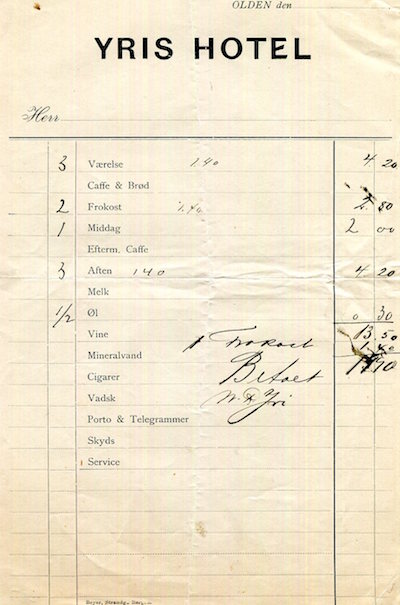 OLDEN den
YRIS HOTEL
Herr
3 Værelse 1.40 4 20
Caffe & Brød
2 Frokost 1.40 2.80
1 Middag 2 00
Efterm. Caffe
3 Aften 140 4 20
Melk
1/2 Øl 0 30
Vine 13.50
1 Frokost 1.40
Mineralvand
Cigarer Betalt
Vadsk
Porto & Telegrammer
Skyds
Service